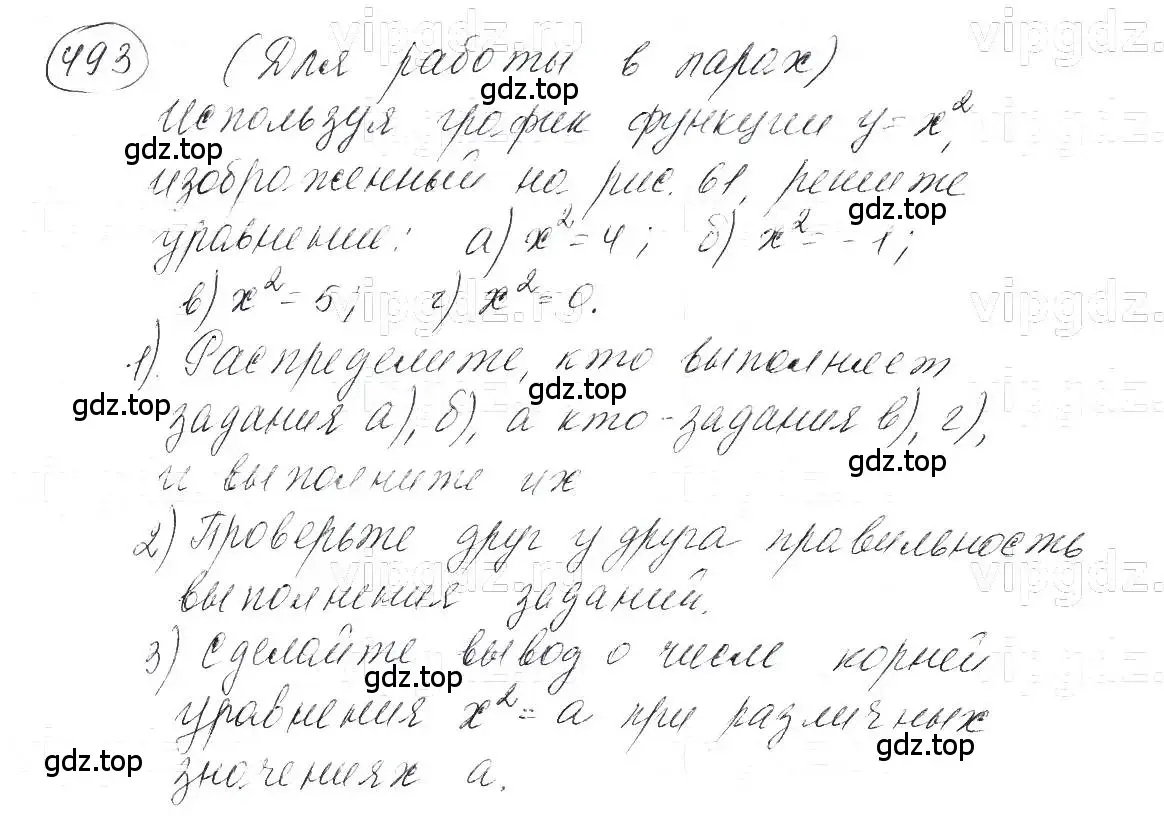 493 (Для работы в парах)
Используя график функции y = x²,
изображенный на рис. 61, решите
уравнение: а) x² = 4; б) x² = -1;
в) x² = 5; г) x² = 0.
1). Распределите, кто выполняет
задания а), б), а кто - задания в), г),
и выполните их
2) Проверьте друг у друга правильность
выполнения заданий.
3) Сделайте вывод о числе корней
уравнения x² = a при различных
значениях a.
vipgdz.ru
vipgdz.
gdz.top
gdz.top
gdz.top
vipgdz.ru
vipgdz.
gdz.top
gdz.top
gdz.top
vipgdz.ru
vipgdz.
gdz.top
gdz.top
gdz.top